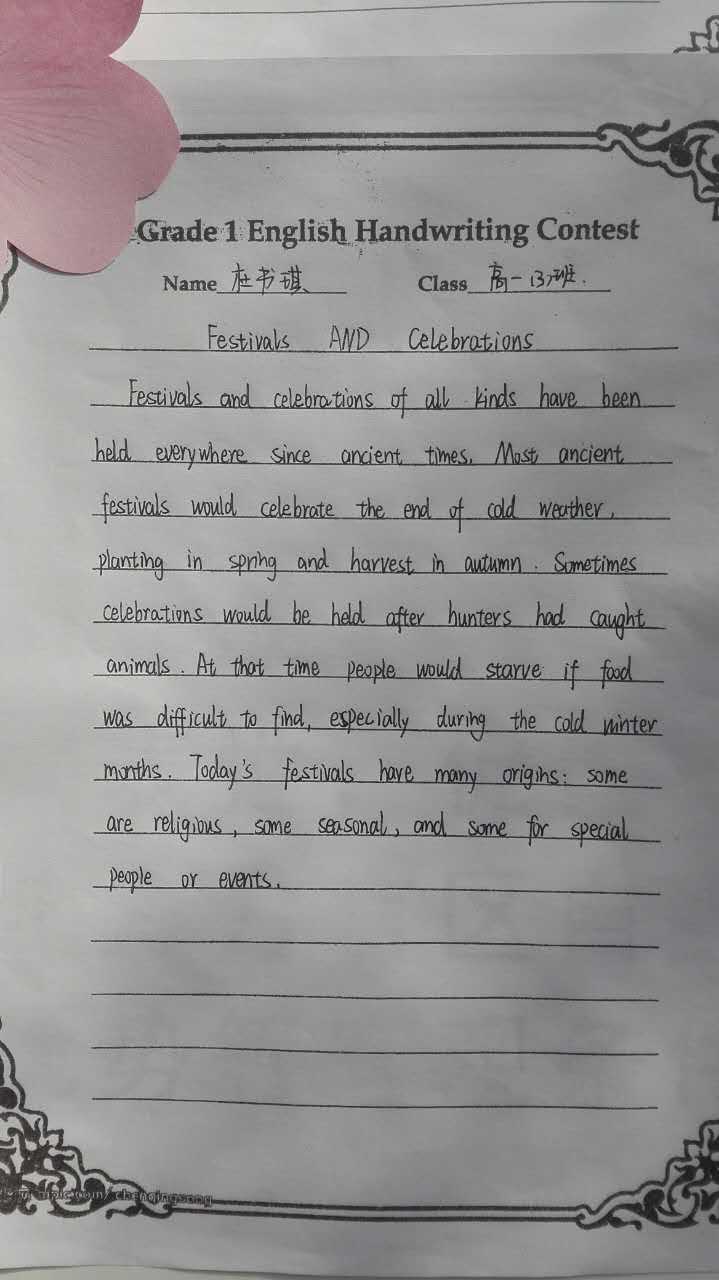 Grade 1 English Handwriting Contest
Name 杜书琪 Class 高一(3)班.
Festivals AND Celebrations
Festivals and celebrations of all kinds have been
held everywhere since ancient times. Most ancient
festivals would celebrate the end of cold weather,
planting in spring and harvest in autumn. Sometimes
celebrations would be held after hunters had caught
animals. At that time people would starve if food
was difficult to find, especially during the cold winter
months. Today's festivals have many origins: some
are religious, some seasonal, and some for special
people or events.